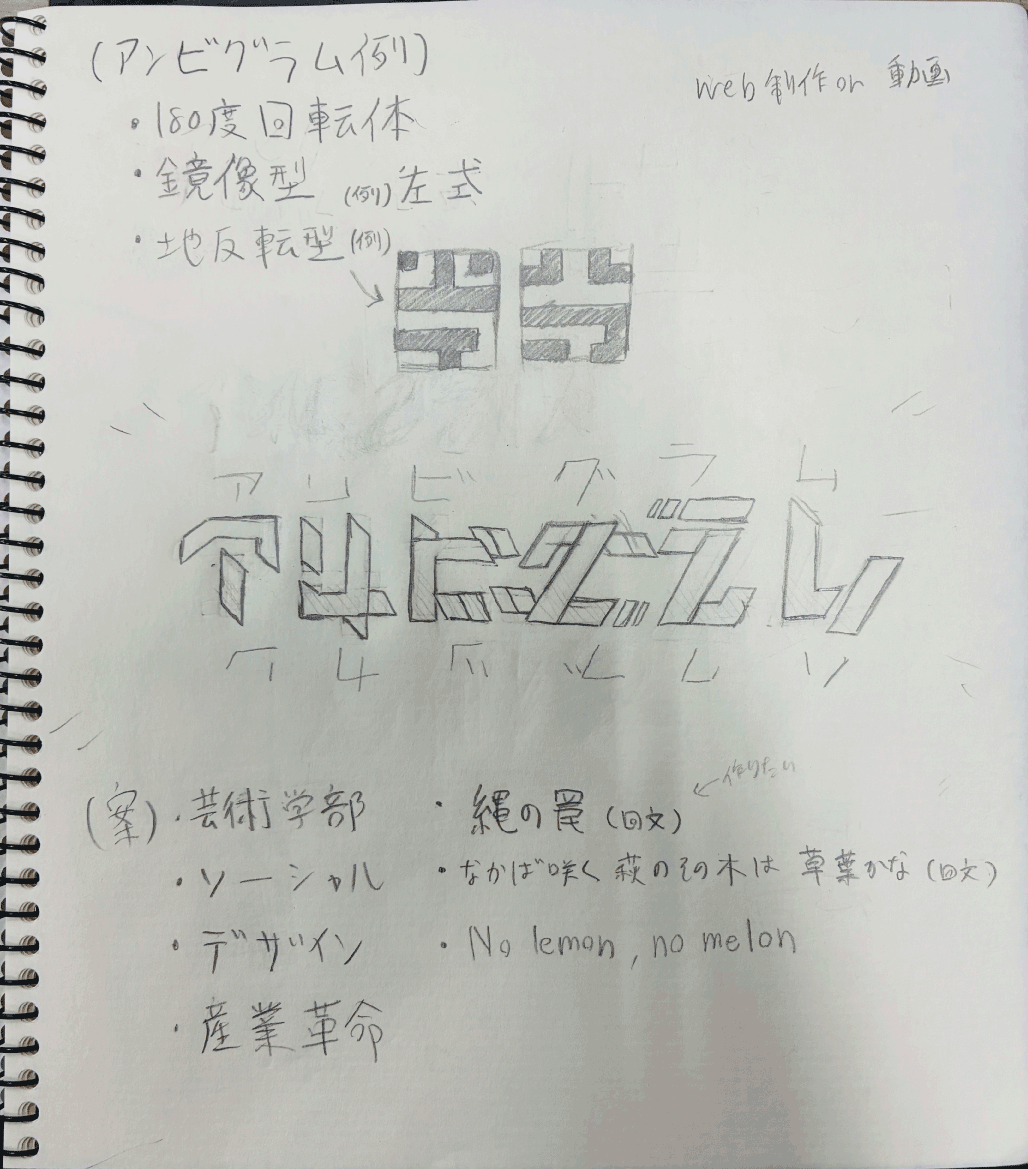 (アンビグラム例)
web制作or 動画
・180度回転体
・鏡像型 (例)左式
・地反転型(例)
アンビグラム
アンビグラム
(案)・芸術学部
・ソーシャル
・デザイン
・産業革命
作りたい
・縄の罠(回文)
・なかば咲く萩のその木は草葉かな(回文)
・No lemon, no melon